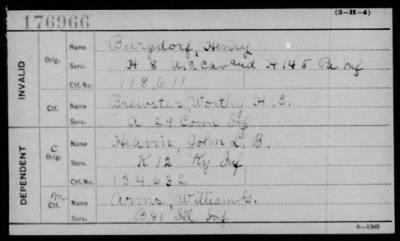 176966
(3-H-4)
INVALID
Orig.
Name Burgdorf, Henry
Serv. H 8 U.S. Cav and H 145 Pa Inf
Ctf. No. 118,611
Ctf.
Name Brewster, Worthy H. E.
Serv. A 29 Conn Inf
DEPENDENT
C
Orig.
Name Heavrin, John L. B.
Serv. K 12 Ky Inf
Ctf. No. 134,632
m
Ctf.
Name Arms, William G.
Serv. B 81 Ill Inf